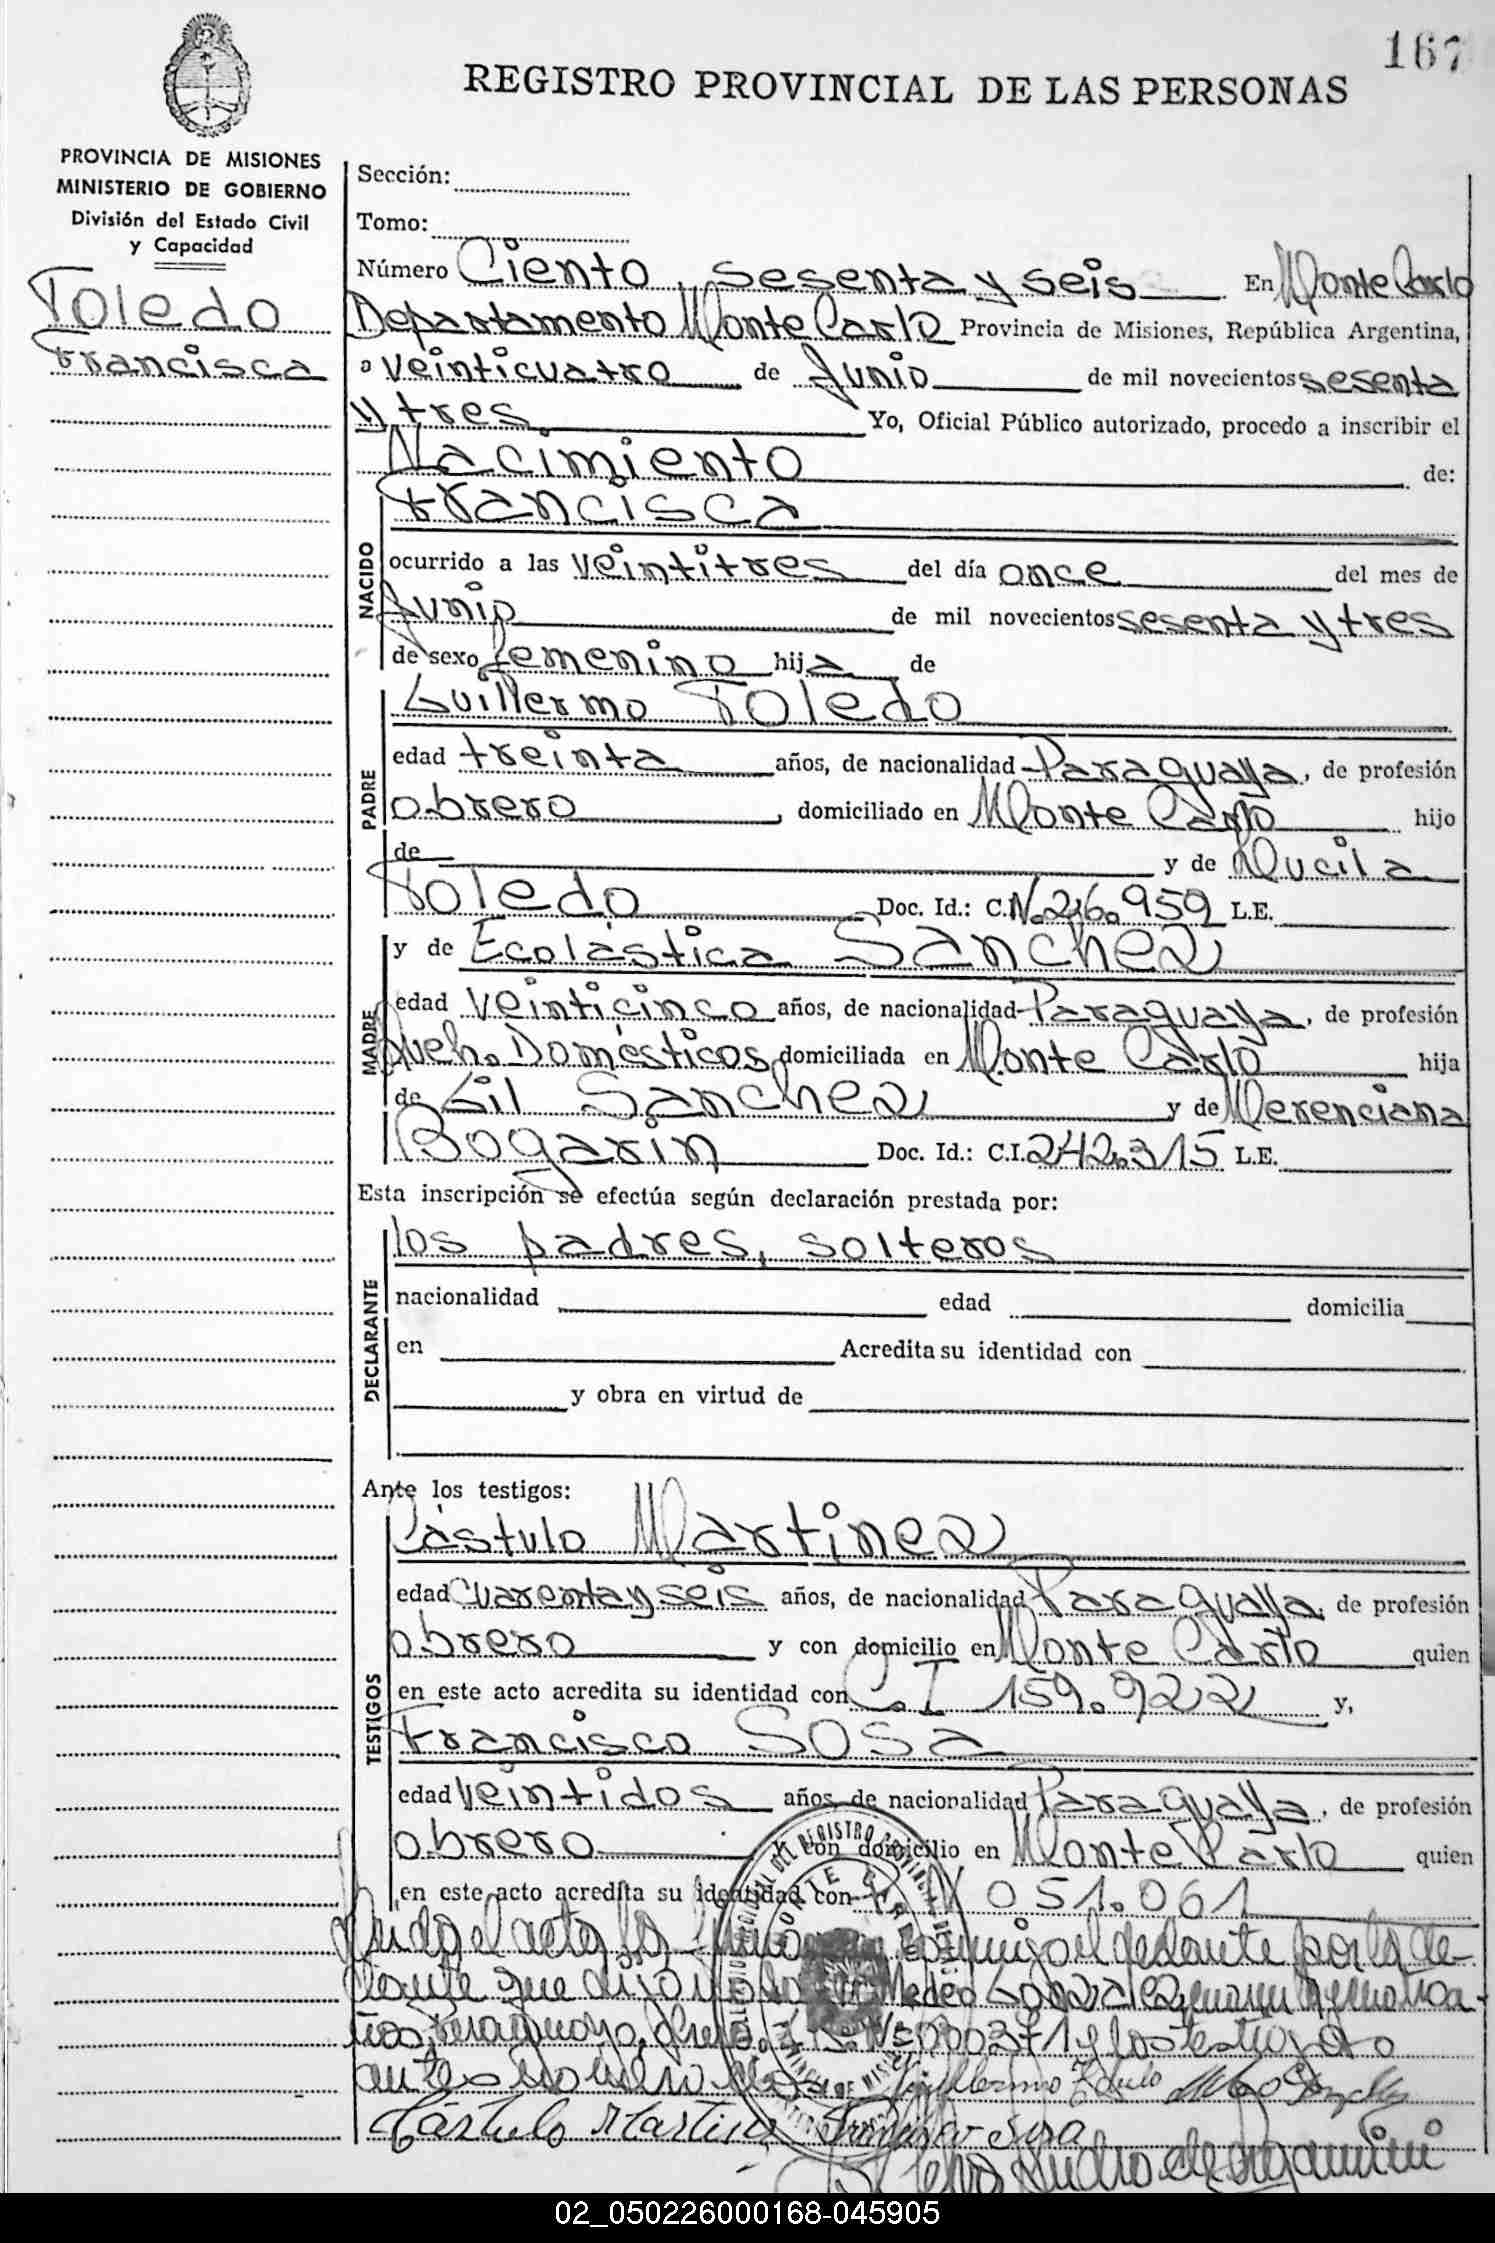 167
REGISTRO PROVINCIAL DE LAS PERSONAS
PROVINCIA DE MISIONES
MINISTERIO DE GOBIERNO
División del Estado Civil
y Capacidad
Toledo
Francisca
Sección:
Tomo:
Número Ciento sesenta y seis En Monte Carlo
Departamento Monte Carlo Provincia de Misiones, República Argentina,
a veinticuatro de Junio de mil novecientos sesenta
y tres Yo, Oficial Público autorizado, procedo a inscribir el
Nacimiento de:
Francisca
NACIDO
ocurrido a las veintitres del día once del mes de
Junio de mil novecientos sesenta y tres
de sexo femenino hija de
Guillermo Toledo
PADRE
edad treinta años, de nacionalidad Paraguaya, de profesión
obrero, domiciliado en Monte Carlo hijo
de y de
Toledo Doc. Id.: C. N. 216.959 L.E.
y de Ecolástica Sanchez
MADRE
edad veinticinco años, de nacionalidad Paraguaya, de profesión
Queh. Domésticos domiciliada en Monte Carlo hija
de Gil Sanchez y de Merenciana
Bogarin Doc. Id.: C.I. 242.315 L.E.
Esta inscripción se efectúa según declaración prestada por:
los padres, solteros
DECLARANTE
nacionalidad edad domicilia
en Acredita su identidad con
y obra en virtud de
Ante los testigos:
Cástulo Martinez
TESTIGOS
edad cuarenta y seis años, de nacionalidad Paraguaya, de profesión
obrero y con domicilio en Monte Carlo quien
en este acto acredita su identidad con C.I 159.922 y,
Francisco Sosa
edad veintidos años, de nacionalidad Paraguaya, de profesión
obrero y con domicilio en Monte Carlo quien
en este acto acredita su identidad con 051.061
el acto conmigo el declarante por la de-
clarante que dijo no
y los testigos
antes
Guillermo Toledo
Cástulo Martinez Francisco Sosa
02_050226000168-045905